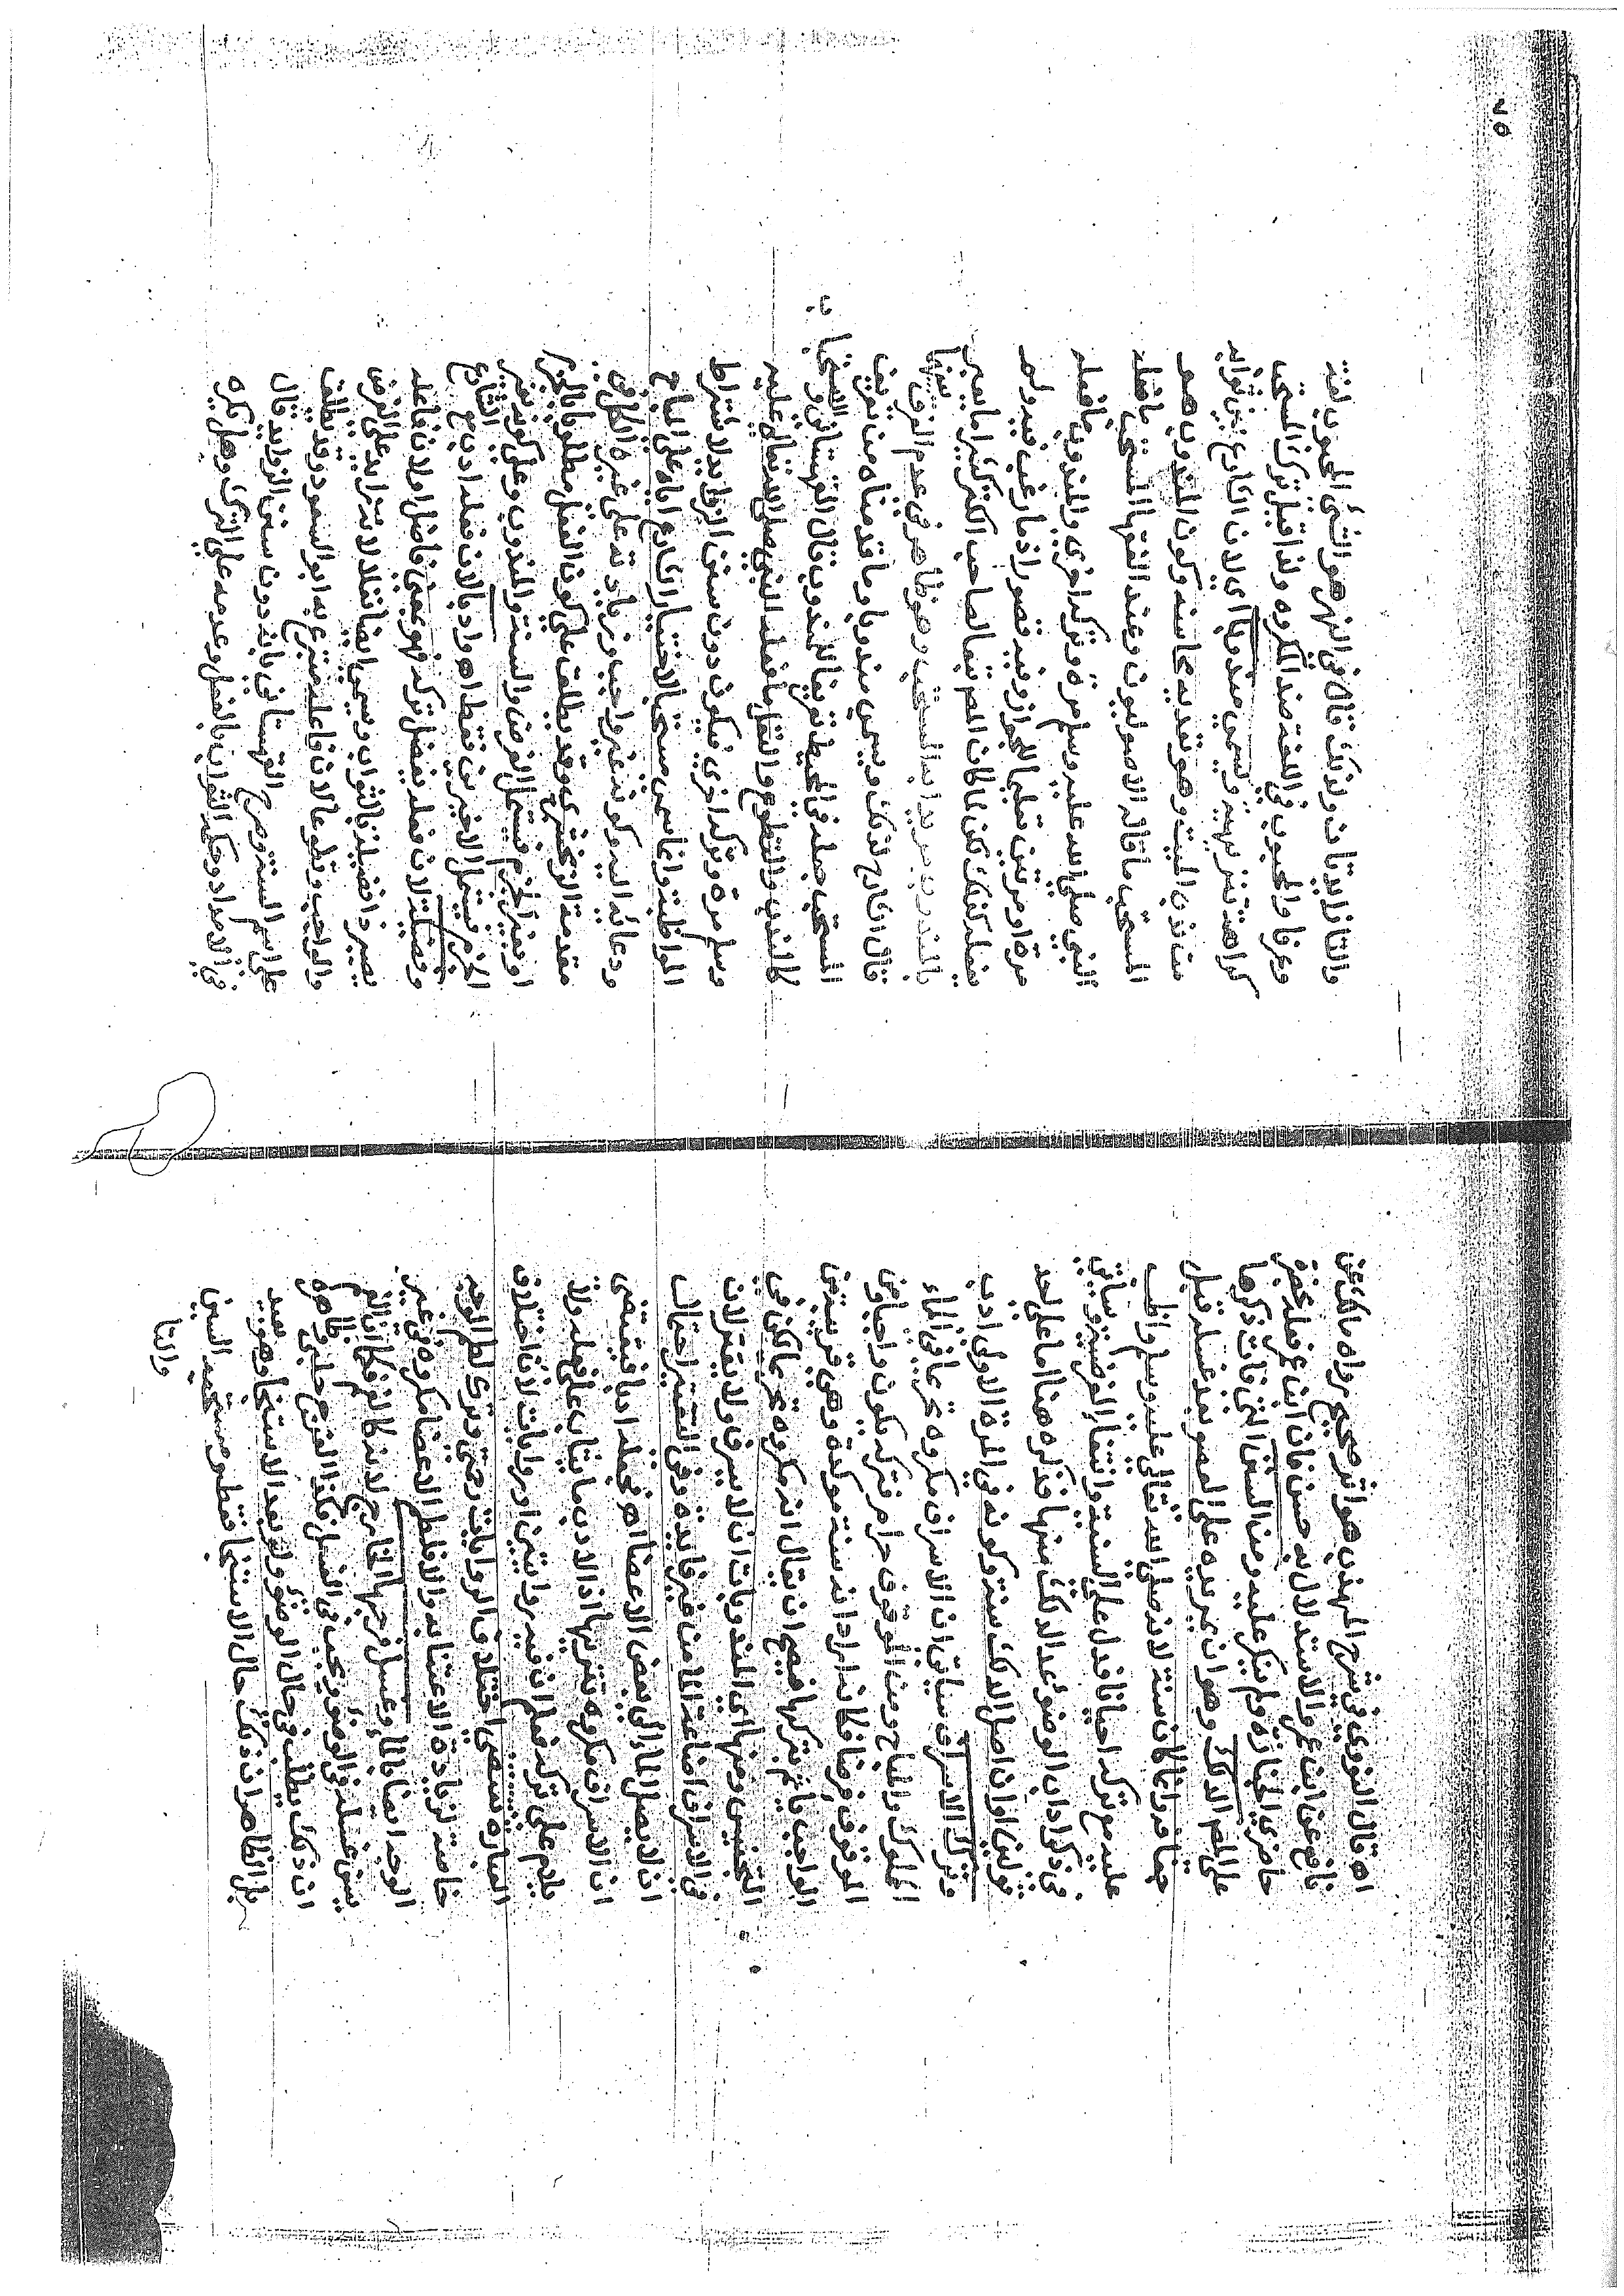 اه قال النووي في شرح المهذب هو اثر صحيح رواه مالك عن
نافع عن ابن عمر والاستدلال به حسن فان ابن عمر فعله بحضرة
حاضري الجنازة ولم ينكر عليه ومن السنن التي فات ذكرها
على المص الدلك وهو ان يمر يده على العضو بعد غسله قيل
وانما كان سنة لانه صلى الله تعالى عليه وسلم واظب
عليه مع تركه احيانا فدل على السنية وانتفاء الفرضية وسياتي
في ذكر اداب الوضوء عد الدلك منها فذكره هنا اما على احد
قولين او ان اصل الدلك سنة وكونه في المرة الاولى ادب
وترك الاسراف سياتي ان الاسراف مكروه تحريما في الماء
المملوك والمباح ومن الموقوف حرام فتركه يكون واجبا وفي
الموقوف فرضا فكانه اراد انه سنة موكدة وهي قريبة من
الواجب ياثم بتركها فيصح ان يقال انه مكروه تحريما لكن في
التجنيس ومنها اي المندوبات ان لا يسرف ولا يقتر لان
في الاسراف اضاعة الماء من غير فايدة وفي التقتير احتمال
ان لا يصل الماء الى بعض الاعضا اه فجعله ادبا فيقتضي
ان الاسراف مكروه تنزيها اذ الادب ما يثاب على فعله ولا
يلام على تركه فعلم ان فيه روايتين او روايات لان اختلاف
العبارة يقتضي اختلاف الروايات وترك لطم الوجه
خاصة لزيادة الاعتنا به والا فلطم الاعضا مكروه في غير
الوجه ايضا بالماء وغسل فرجها الخارج لانه كالفم فكما ان الفم
يسن غسله في الوضوء ويجب في الغسل فكذا الفرج حلبي وظاهره
ان ذلك يطلب في حال الوضوء ولو بعد الاستنجا وهو بعيد
بل الظاهر ان ذلك حال الاستنجا فقط ومستحبه السين
والتا
٧٥
والتا زايدتان ولذلك قال في النهر هو الشئ المحبوب لغة
وعرفا والمحبوب في اللغة ضد المكروه ولذا قيل ترك المستحب
كراهة تنزيهية ويسمى مندوبا اي لان الشارع بين ثوابه
من ندب الميت وهو تعديد محاسنه وكون المندوب هو
المستحب ما قاله الاصوليون وعند الفقها المستحب ما فعله
النبي صلى الله عليه وسلم مرة وتركه اخرى والمندوب ما فعله
مرة او مرتين تعليما للجواز وفيه قصور اذ ما رغب فيه ولم
يفعله كذلك لكن لما كان المص تبعا لصاحب الكنز كثيرا ما يعبر
بالمندوب مريدا به المستحب وهو ظاهر في عدم الفرق بينهما
قال الشارح لذلك ويسمى مندوبا وما قدمناه من تعريف
المستحب جعله في المحيط تعريفا للمندوب قال القهستاني والاستحباب
كالندب والتطوع والنفل ما فعله النبي صلى الله تعالى عليه
وسلم مرة وتركه اخرى فيكون دون سنن الزوايد لاشتراط
المواظبة وانما سمي مستحبا لاختيار الشارع اياه على المباح
ودعائه اليه وكونه غير واجب وزيادته على غيره الكل في
مقدمة الزمخشري وقد يطلق على كون الفعل مطلوبا بالجزم
او بغير الجزم فيشتمل الفرض والسنة والمندوب وعلى كونه بغير
الجزم فيشتمل الاخيرين فقط اه وادبا لان فعله ادب الشارع
وفضيلة لان فعله يفضل تركه فهو بمعنى فاضل او لان فاعله
يصير ذا فضيلة بالثواب ويسمى ايضا نفلا لانه زايد على الفرض
والواجب وتطوعا لان فاعله متبرع به ابو السعود وقد يطلق
على اسم السنة وصرح القهستاني بانه دون سنن الزوايد قال
في الامداد وحكمه الثواب بالفعل وعدمه على الترك وهل يكره